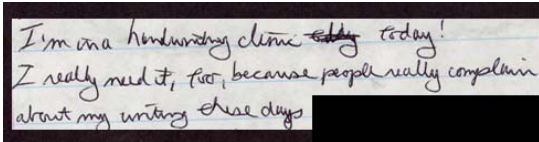 I'm in a handwriting clinic today!
I really need it, too, because people really complain
about my writing these days